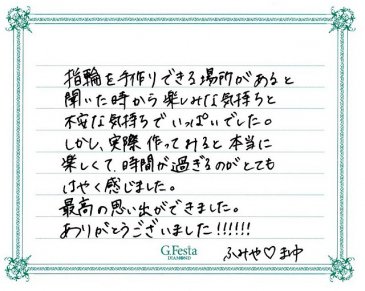 指輪を手作りできる場所があると
聞いた時から楽しみな気持ちと
不安な気持ちでいっぱいでした。
しかし、実際作ってみると本当に
楽しくて、時間が過ぎるのがとても
はやく感じました。
最高の思い出ができました。
ありがとうございました!!!!!!
G.Festa
DIAMOND
ふみや♡まゆ